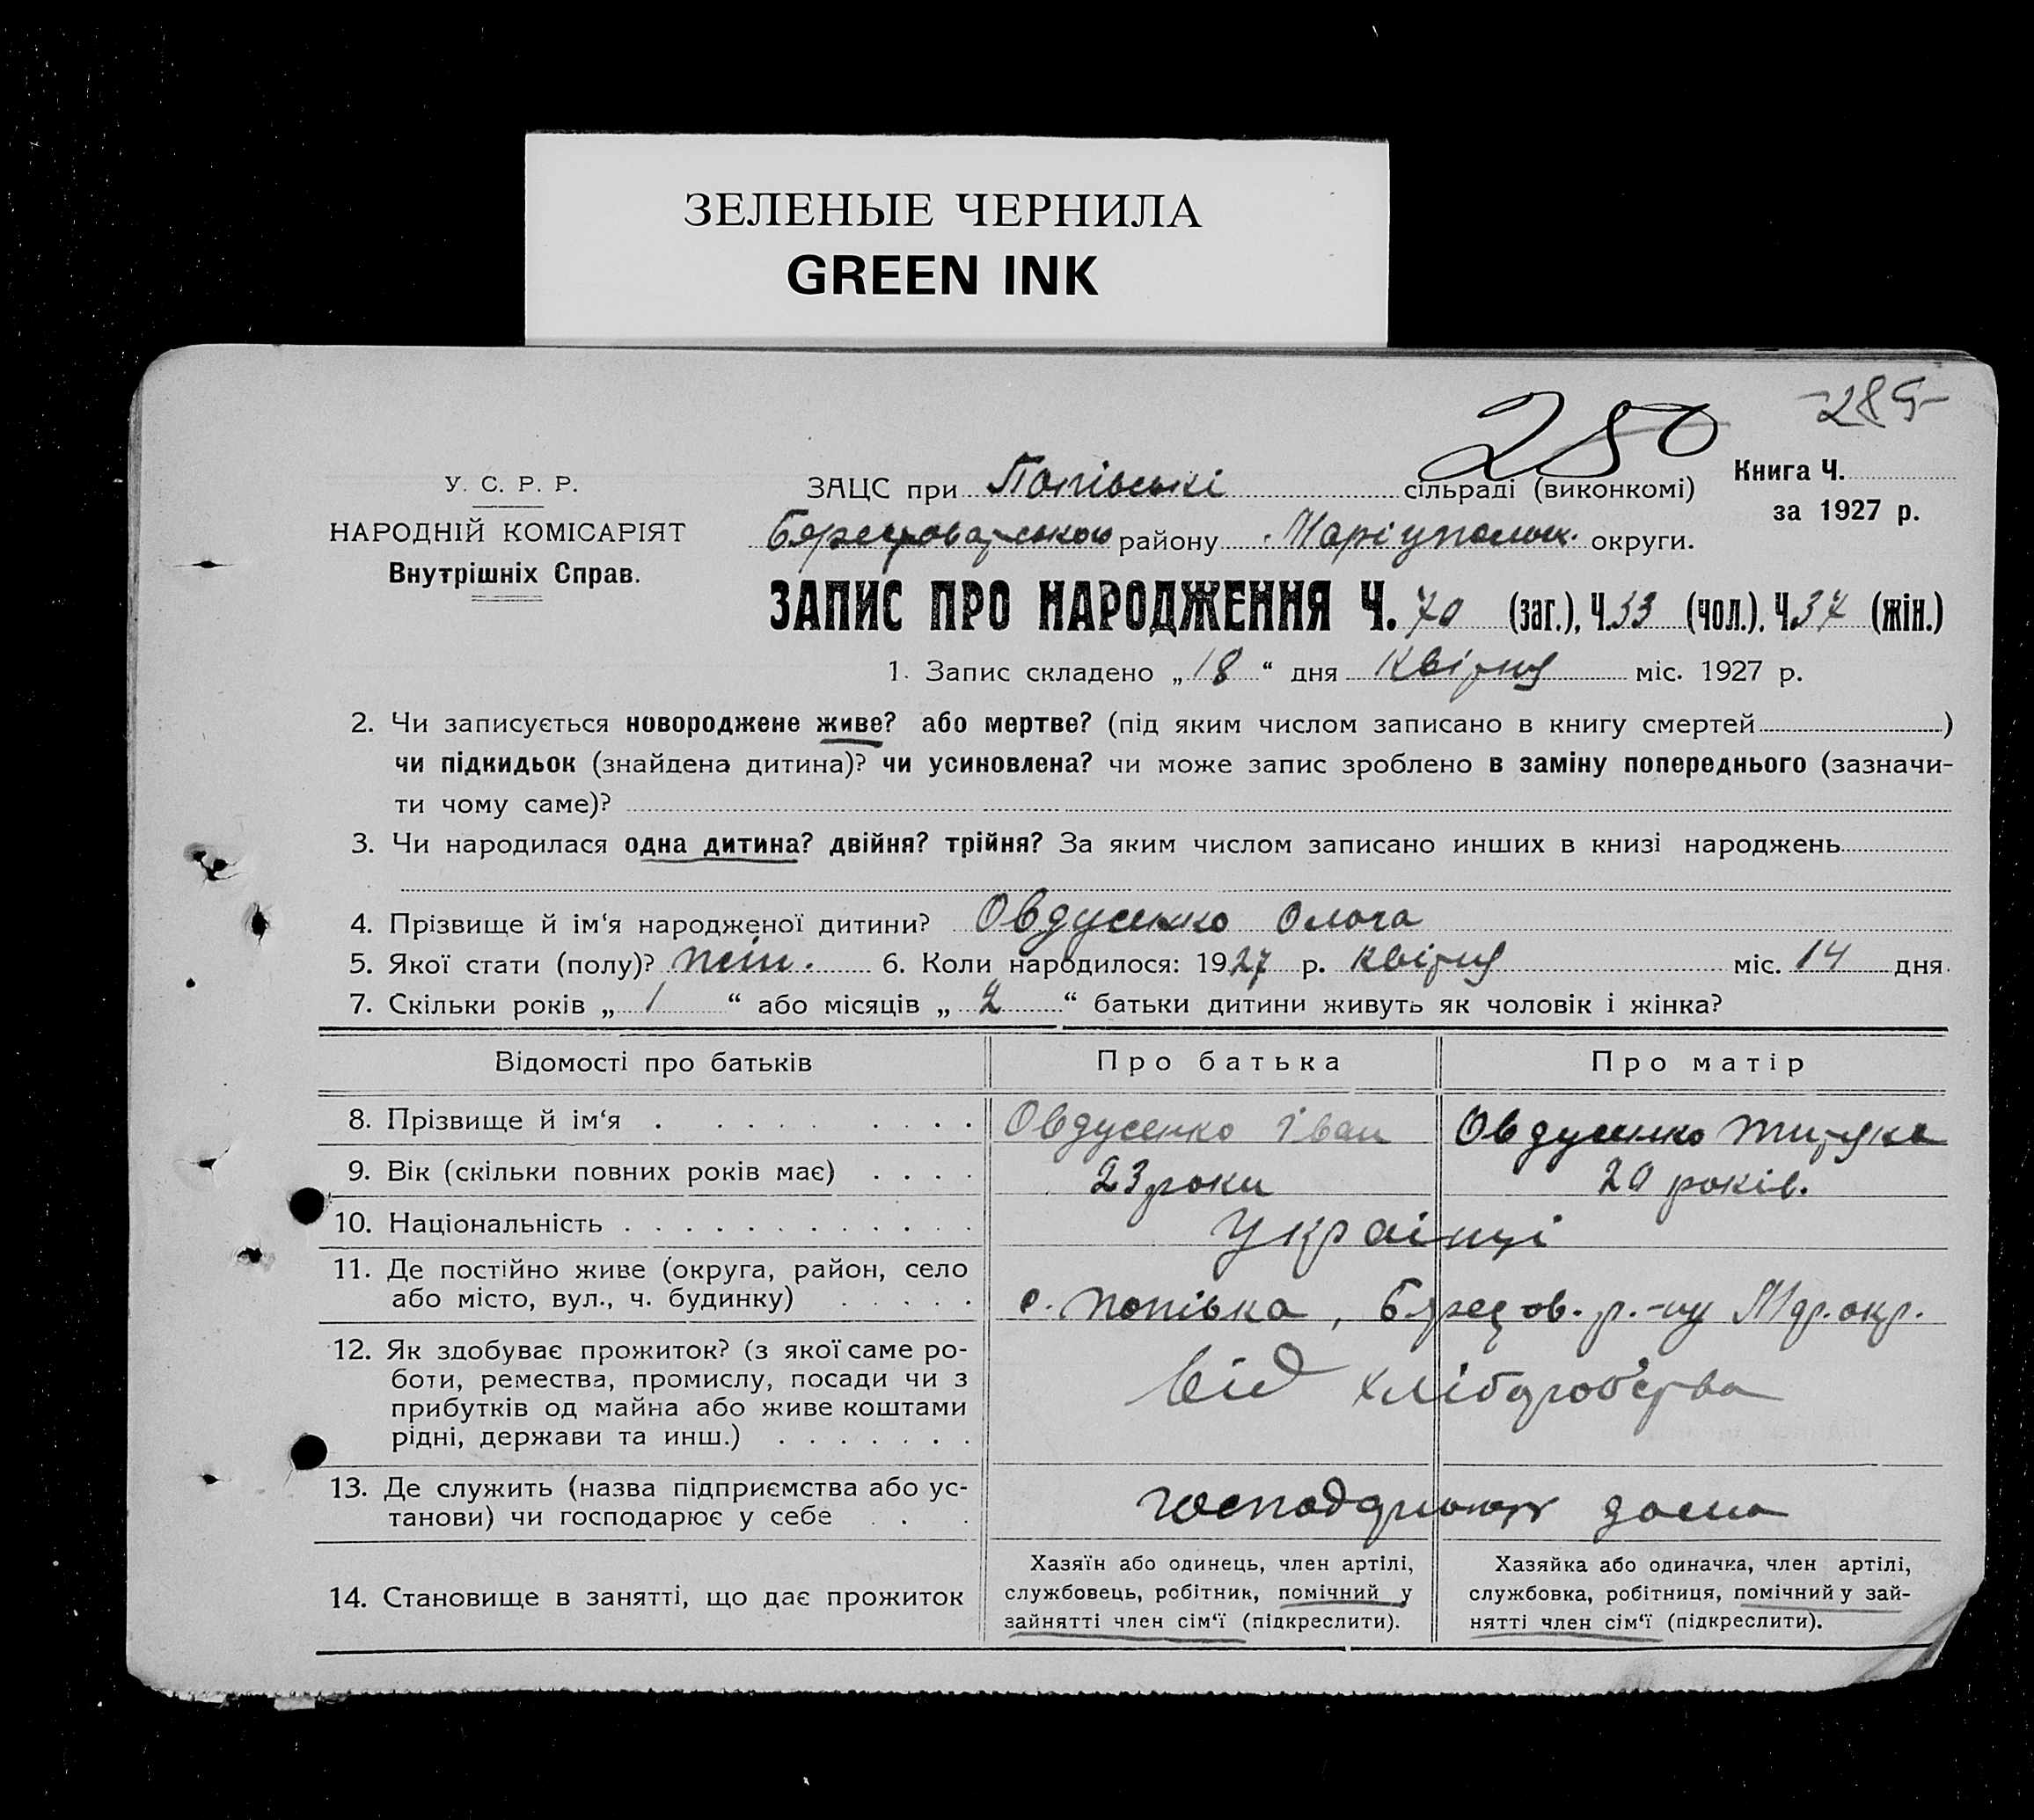 ЗЕЛЕНЫЕ ЧЕРНИЛА
GREEN INK
-285-
280
У. С. Р. Р.
НАРОДНІЙ КОМІСАРІЯТ
Внутрішніх Справ.
ЗАЦС при Попівські сільраді (виконкомі)
Книга Ч.
за 1927 р.
району Маріупольск. округи.
ЗАПИС ПРО НАРОДЖЕННЯ Ч. 70 (заг.), Ч. 33 (чол.), Ч. 37 (жін.)
1. Запис складено „18“ дня Квітня міс. 1927 р.
2. Чи записується новороджене живе? або мертве? (під яким числом записано в книгу смертей )
чи підкидьок (знайдена дитина)? чи усиновлена? чи може запис зроблено в заміну попереднього (зазначи-
ти чому саме)?
3. Чи народилася одна дитина? двійня? трійня? За яким числом записано инших в книзі народжень
4. Прізвище й ім‘я народженої дитини? Овдусенко
5. Якої стати (полу)? жін. 6. Коли народилося: 1927 р. квітня міс. 14 дня.
7. Скільки років „1“ або місяців „2“ батьки дитини живуть як чоловік і жінка?
Відомості про батьків Про батька Про матір
8. Прізвище й ім‘я . . . . . . . . Овдусенко Іван Овдусенко
9. Вік (скільки повних років має) . . . . 23 роки 20 років.
10. Національність . . . . . . . . . . . . . Українці
11. Де постійно живе (округа, район, село
або місто, вул., ч. будинку) . . . . . с. Попівка, р.-ну Мар. окр.
12. Як здобуває прожиток? (з якої саме ро-
боти, ремества, промислу, посади чи з
прибутків од майна або живе коштами
рідні, держави та инш.) . . . . . . . від хліборобства
13. Де служить (назва підприємства або ус-
танови) чи господарює у себе . . . господарюют дома
14. Становище в занятті, що дає прожиток
Хазяїн або одинець, член артілі,
службовець, робітник, помічний у
зайнятті член сім‘ї (підкреслити).
Хазяйка або одиначка, член артілі,
службовка, робітниця, помічний у зай-
нятті член сім‘ї (підкреслити).